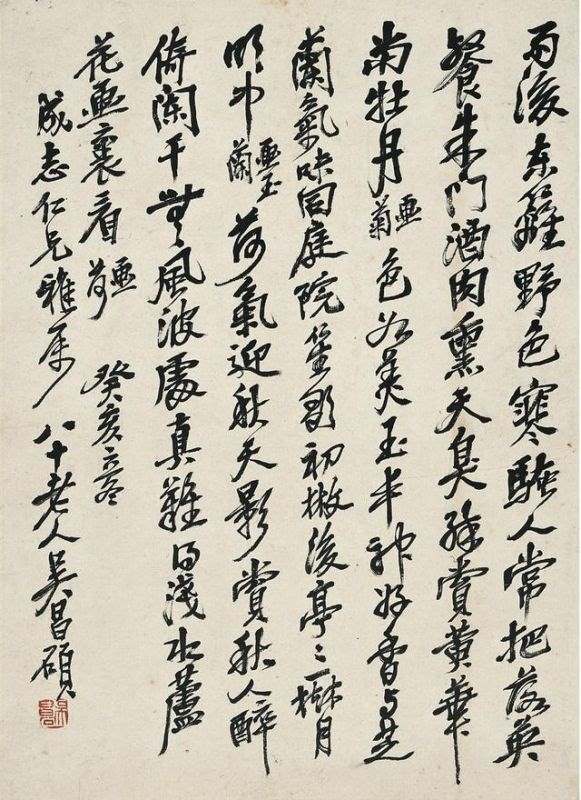 雨後东籬野色寒騷人常把落英
餐朱門酒肉熏天臭賞黃華
尚牡丹畫菊色如美玉丰神好香与芝
蘭氣味同庭院笙歌初撤後亭亭一樹月
明中畫玉蘭荷氣迎秋天影賞秋人醉
倚闌干無風波處真難得淺水蘆
花畫裏看畫荷 癸亥
成志仁兄雅属 八十老人吳昌碩